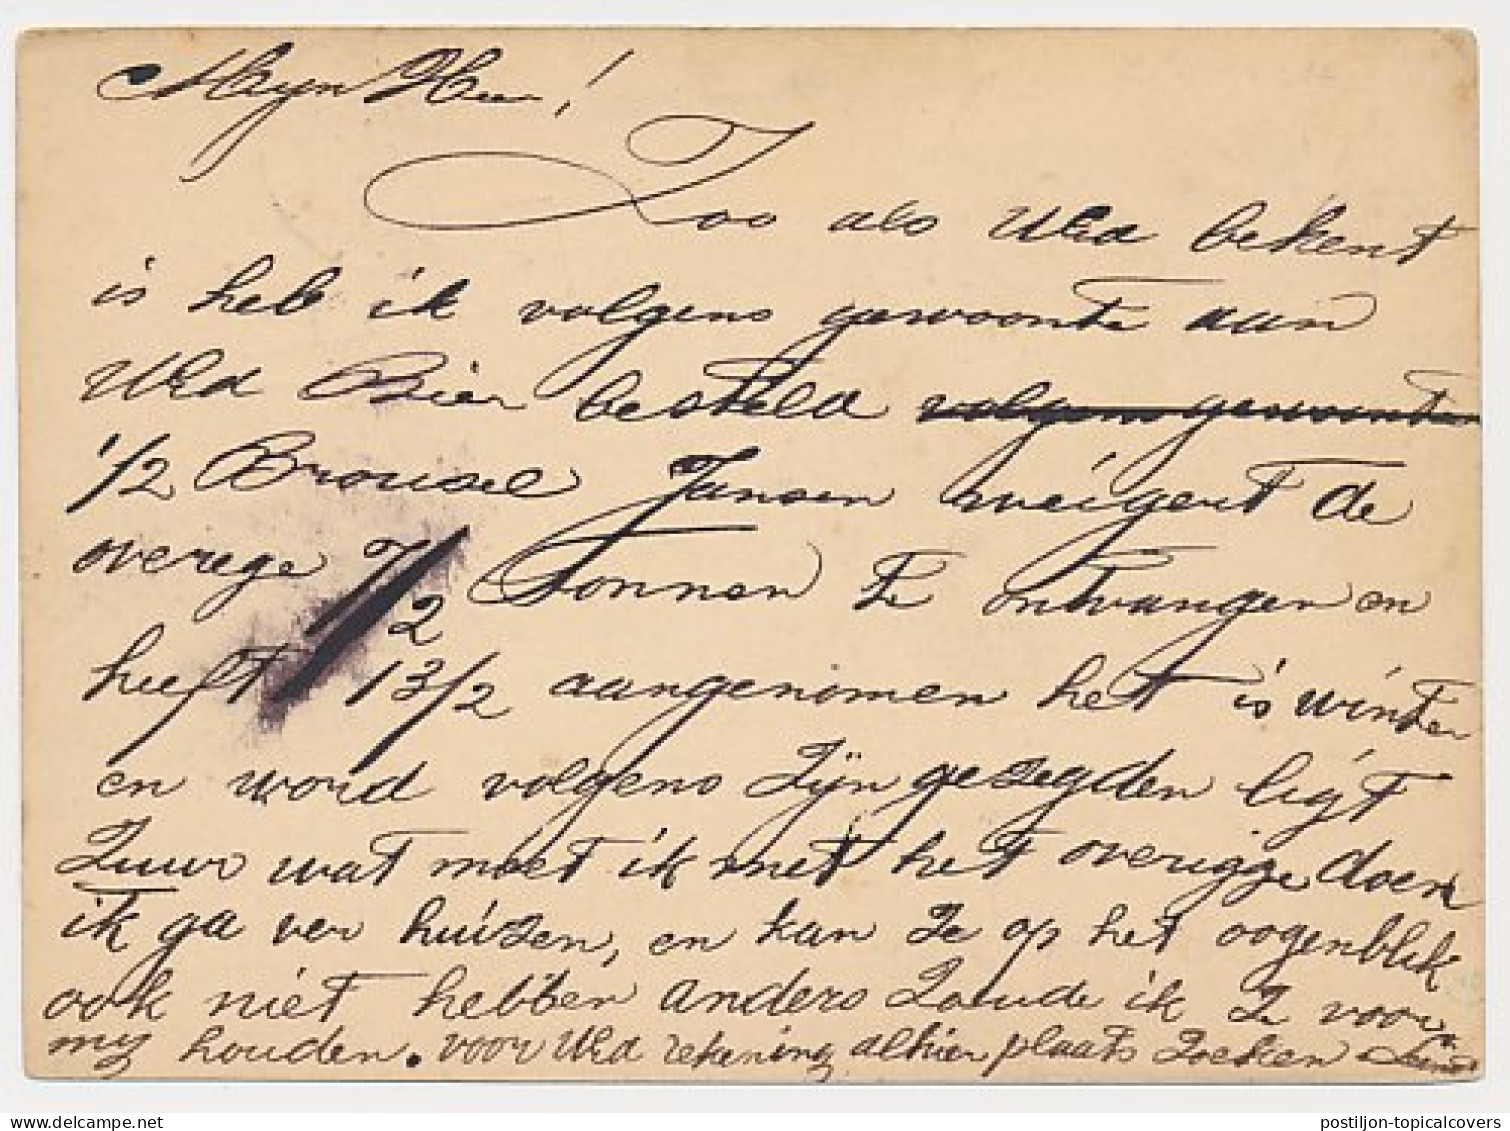 Mijn Heer!
Zoo als UEd bekent
is heb ik volgens gewoonte aan
UEd Bier besteld volgens gewoonte
1/2 Brousel Jansen weigert de
overege 7/2 Tonnen te ontvangen en
heeft 13/2 aangenomen het is winter
en word volgens Zijn gezegden ligt
Zuur wat moet ik met het overigge doen
ik ga ver huizen, en kan Ze op het oogenblik
ook niet hebben anders Zoude ik Ze voor
mij houden. voor UEd rekening alhier plaats Zoeken
postiljon-topicalcovers